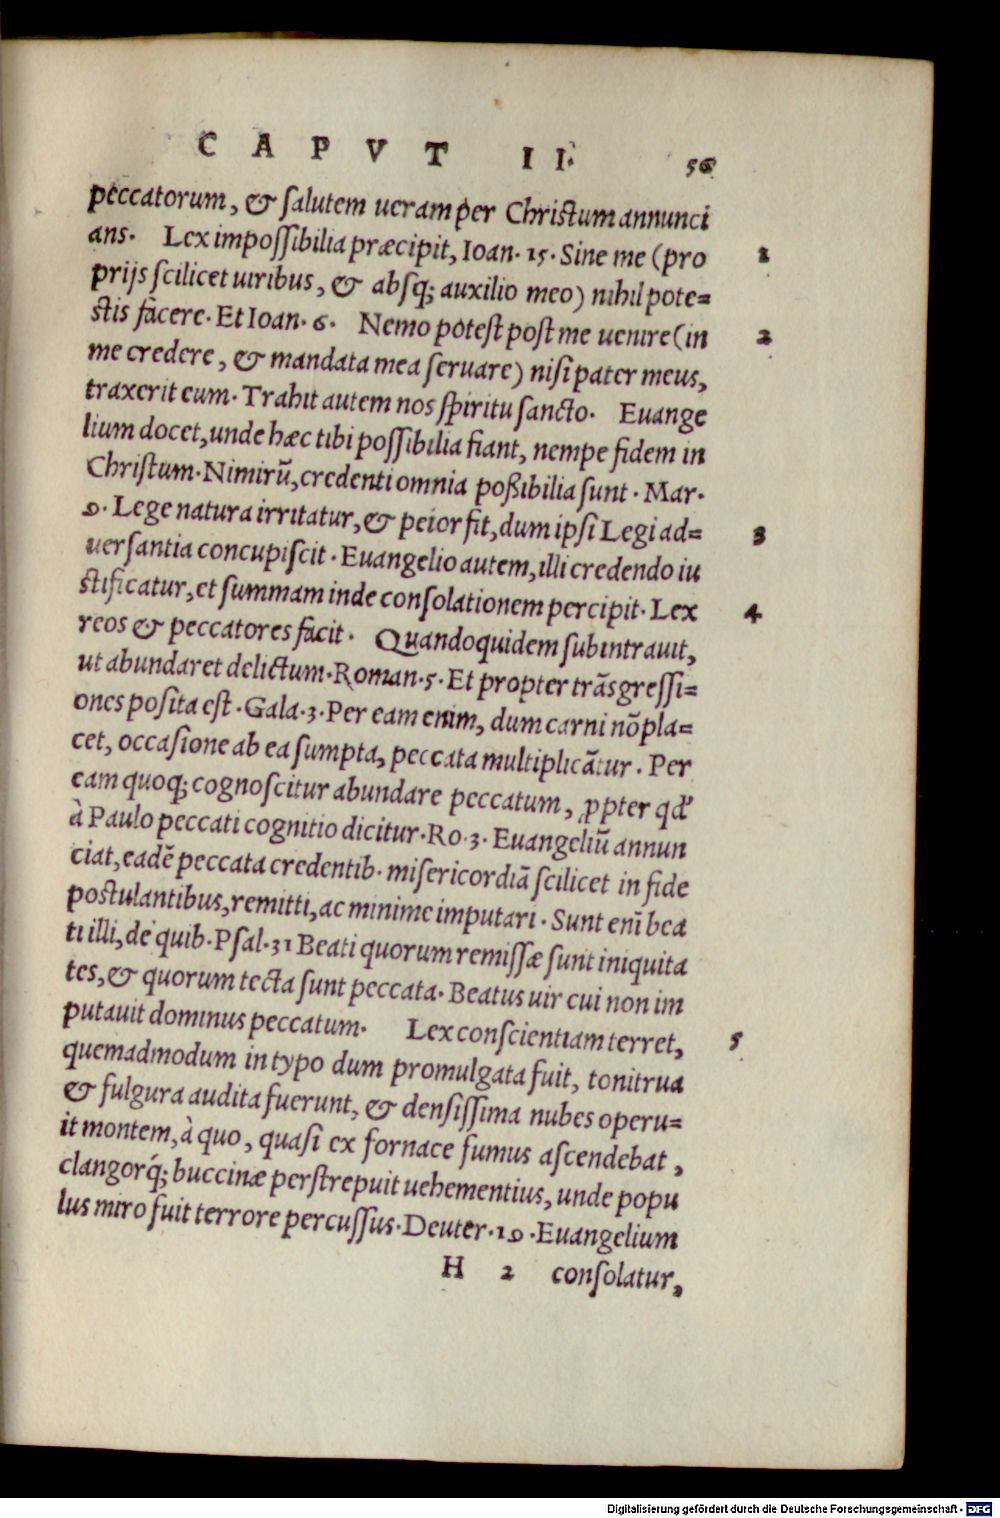 CAPVT II.
56
peccatorum, & ſalutem ueram per Chriſtum annunci
ans. Lex impoſſibilia præcipit, Ioan. 15. Sine me (pro 1
prijs ſcilicet uiribus, & abſq; auxilio meo) nihil pote=
ſtis facere. Et Ioan. 6. Nemo poteſt poſt me uenire (in 2
me credere, & mandata mea ſeruare) niſi pater meus,
traxerit eum. Trahit autem nos ſpiritu ſancto. Euange
lium docet, unde hæc tibi poſſibilia fiant, nempe fidem in
Chriſtum. Nimirũ, credenti omnia poßibilia ſunt. Mar.
9. Lege natura irritatur, & peior fit, dum ipſi Legi ad= 3
uerſantia concupiſcit. Euangelio autem, illi credendo iu
ſtificatur, et ſummam inde conſolationem percipit. Lex 4
reos & peccatores facit. Quandoquidem ſubintrauit,
ut abundaret delictum. Roman. 5. Et propter trãſgreſſi=
ones poſita eſt. Gala. 3. Per eam enim, dum carni nõ pla=
cet, occaſione ab ea ſumpta, peccata multiplicãtur. Per
eam quoq; cognoſcitur abundare peccatum, ꝓpter qđ
à Paulo peccati cognitio dicitur. Ro. 3. Euangeliũ annun
ciat, eadẽ peccata credentib. miſericordiã ſcilicet in fide
poſtulantibus, remitti, ac minime imputari. Sunt enĩ bea
ti illi, de quib. Pſal. 31 Beati quorum remiſſæ ſunt iniquita
tes, & quorum tecta ſunt peccata. Beatus uir cui non im
putauit dominus peccatum. Lex conſcientiam terret, 5
quemadmodum in typo dum promulgata fuit, tonitrua
& fulgura audita fuerunt, & denſiſſima nubes operu=
it montem, à quo, quaſi ex fornace fumus aſcendebat,
clangorq́; buccinæ perſtrepuit uehementius, unde popu
lus miro fuit terrore percuſſus. Deuter. 19. Euangelium
H 2 conſolatur,
Digitalisierung gefördert durch die Deutsche Forschungsgemeinschaft - DFG